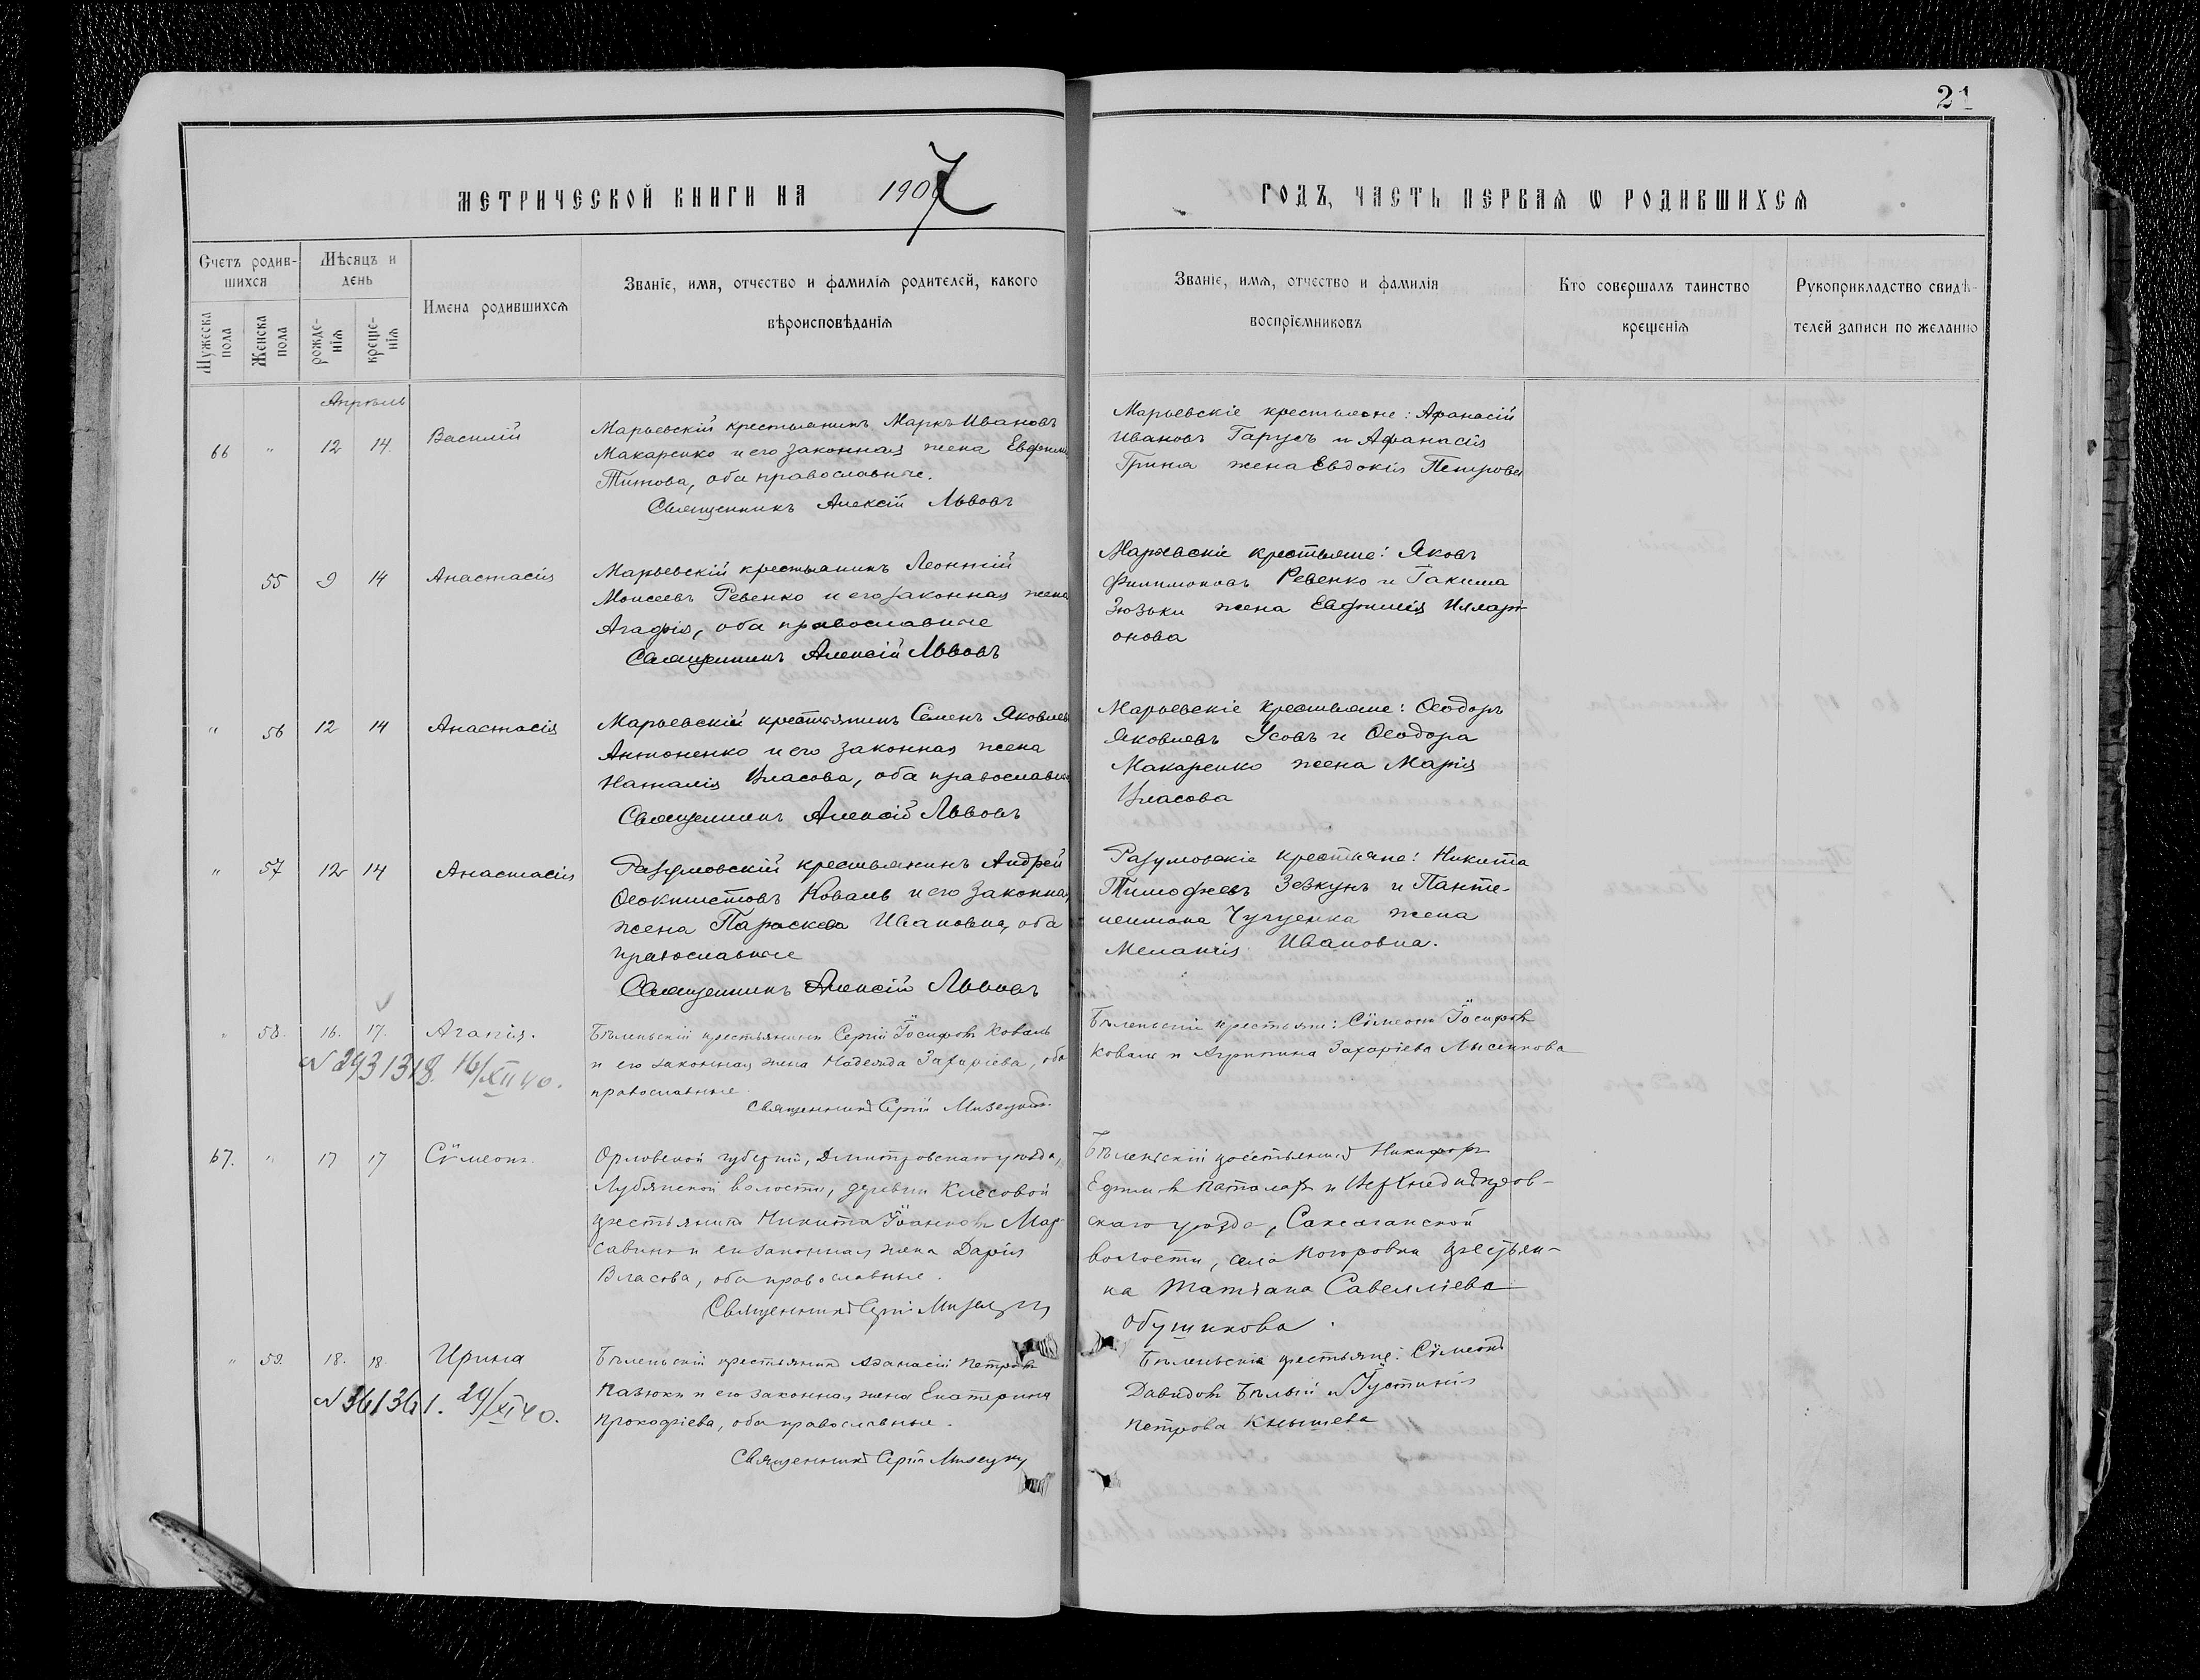 21
МЕТРИЧЕСКОЙ КНИГИ НА 1907 ГОДЪ, ЧАСТЬ ПЕРВАЯ Ѡ РОДИВШИХСЯ
Счетъ родив-
шихся
Мужеска
пола
Женска
пола
Мѣсяцъ и
день
рожде-
нія
креще-
нія
Имена родившихся
Званіе, имя, отчество и фамилія родителей, какого
вѣроисповѣданія
Званіе, имя, отчество и фамилія
воспріемниковъ
Кто совершалъ таинство
крещенія
Рукоприкладство свидѣ-
телей записи по желанію
Апрѣль
66 " 12 14. Василій
Марьевскій крестьянинъ Маркъ Ивановъ
Макаренко и его законная жена
Титова, оба православные.
Священникъ Алексій Львовъ
Марьевскіе крестьяне: Афанасій
Ивановъ Гарусъ и Афанасія
Грина жена Евдокія Петрова
55 9 14 Анастасія
Марьевскій крестьянинъ Леонтій
Моисеевъ Ревенко и его законная жена
Агафія, оба православные
Священникъ Алексій Львовъ
Марьевскіе крестьяне: Яковъ
Филимоновъ Ревенко и Іакима
Зюзьки жена Евфимія Иллари-
онова
" 56 12 14 Анастасія
Марьевскій крестьянинъ Семенъ Яковлевъ
Антоненко и его законная жена
Наталія Власова, оба православные
Священникъ Алексій Львовъ
Марьевскіе крестьяне: Ѳеодоръ
Яковлевъ Усовъ и Ѳеодора
Макаренко жена Марія
Власова
" 57 12 14 Анастасія
Разумовскій крестьянинъ Андрей
Ѳеоктистовъ Коваль и его законная
жена Параскева Ивановна, оба
православные
Священникъ Алексій Львовъ
Разумовскіе крестьяне: Никита
Тимофеевъ Зевкунъ и Панте-
леимона Чугуенка жена
Меланія Ивановна.
" 58. 16. 17. Агапія.
N 2931318. 16/XII 40.
Бѣленьскій крестьянинъ Сергій Іосифовъ Коваль
и его законная жена Надежда Захаріева, оба
православные
Священникъ Сергій Мизецкій.
Бѣленьскіе крестьяне: Сѵмеонъ Іосифовъ
Коваль и Агриппина Захаріева Лысенкова
67. " 17 17 Сѵмеонъ.
Орловской губерніи, Дмитровскаго уѣзда,
Лубянской волости, деревни Клесовой
крестьянинъ Никита Іоанновъ Мар-
савинъ и его законная жена Дарія
Власова, оба православные.
Священникъ Сергій Мизецкій
Бѣленьскій крестьянинъ Никифоръ
Ефимовъ Паталахъ и Верхнеднѣпров-
скаго уѣзда, Саксаганской
волости, села крестьян-
ка Татіана Савелліева
Обушикова.
" 59. 18. 18. Ирина
N 361361. 29/XI 40.
Бѣленьскій крестьянинъ Аѳанасій Петровъ
Павюкъ и его законная жена Екатерина
Прокофіева, оба православные.
Священникъ Сергій Мизецкій
Бѣленьскіе крестьяне: Сѵмеонъ
Давидовъ Бѣлый и Іустинія
Петрова Кнышева